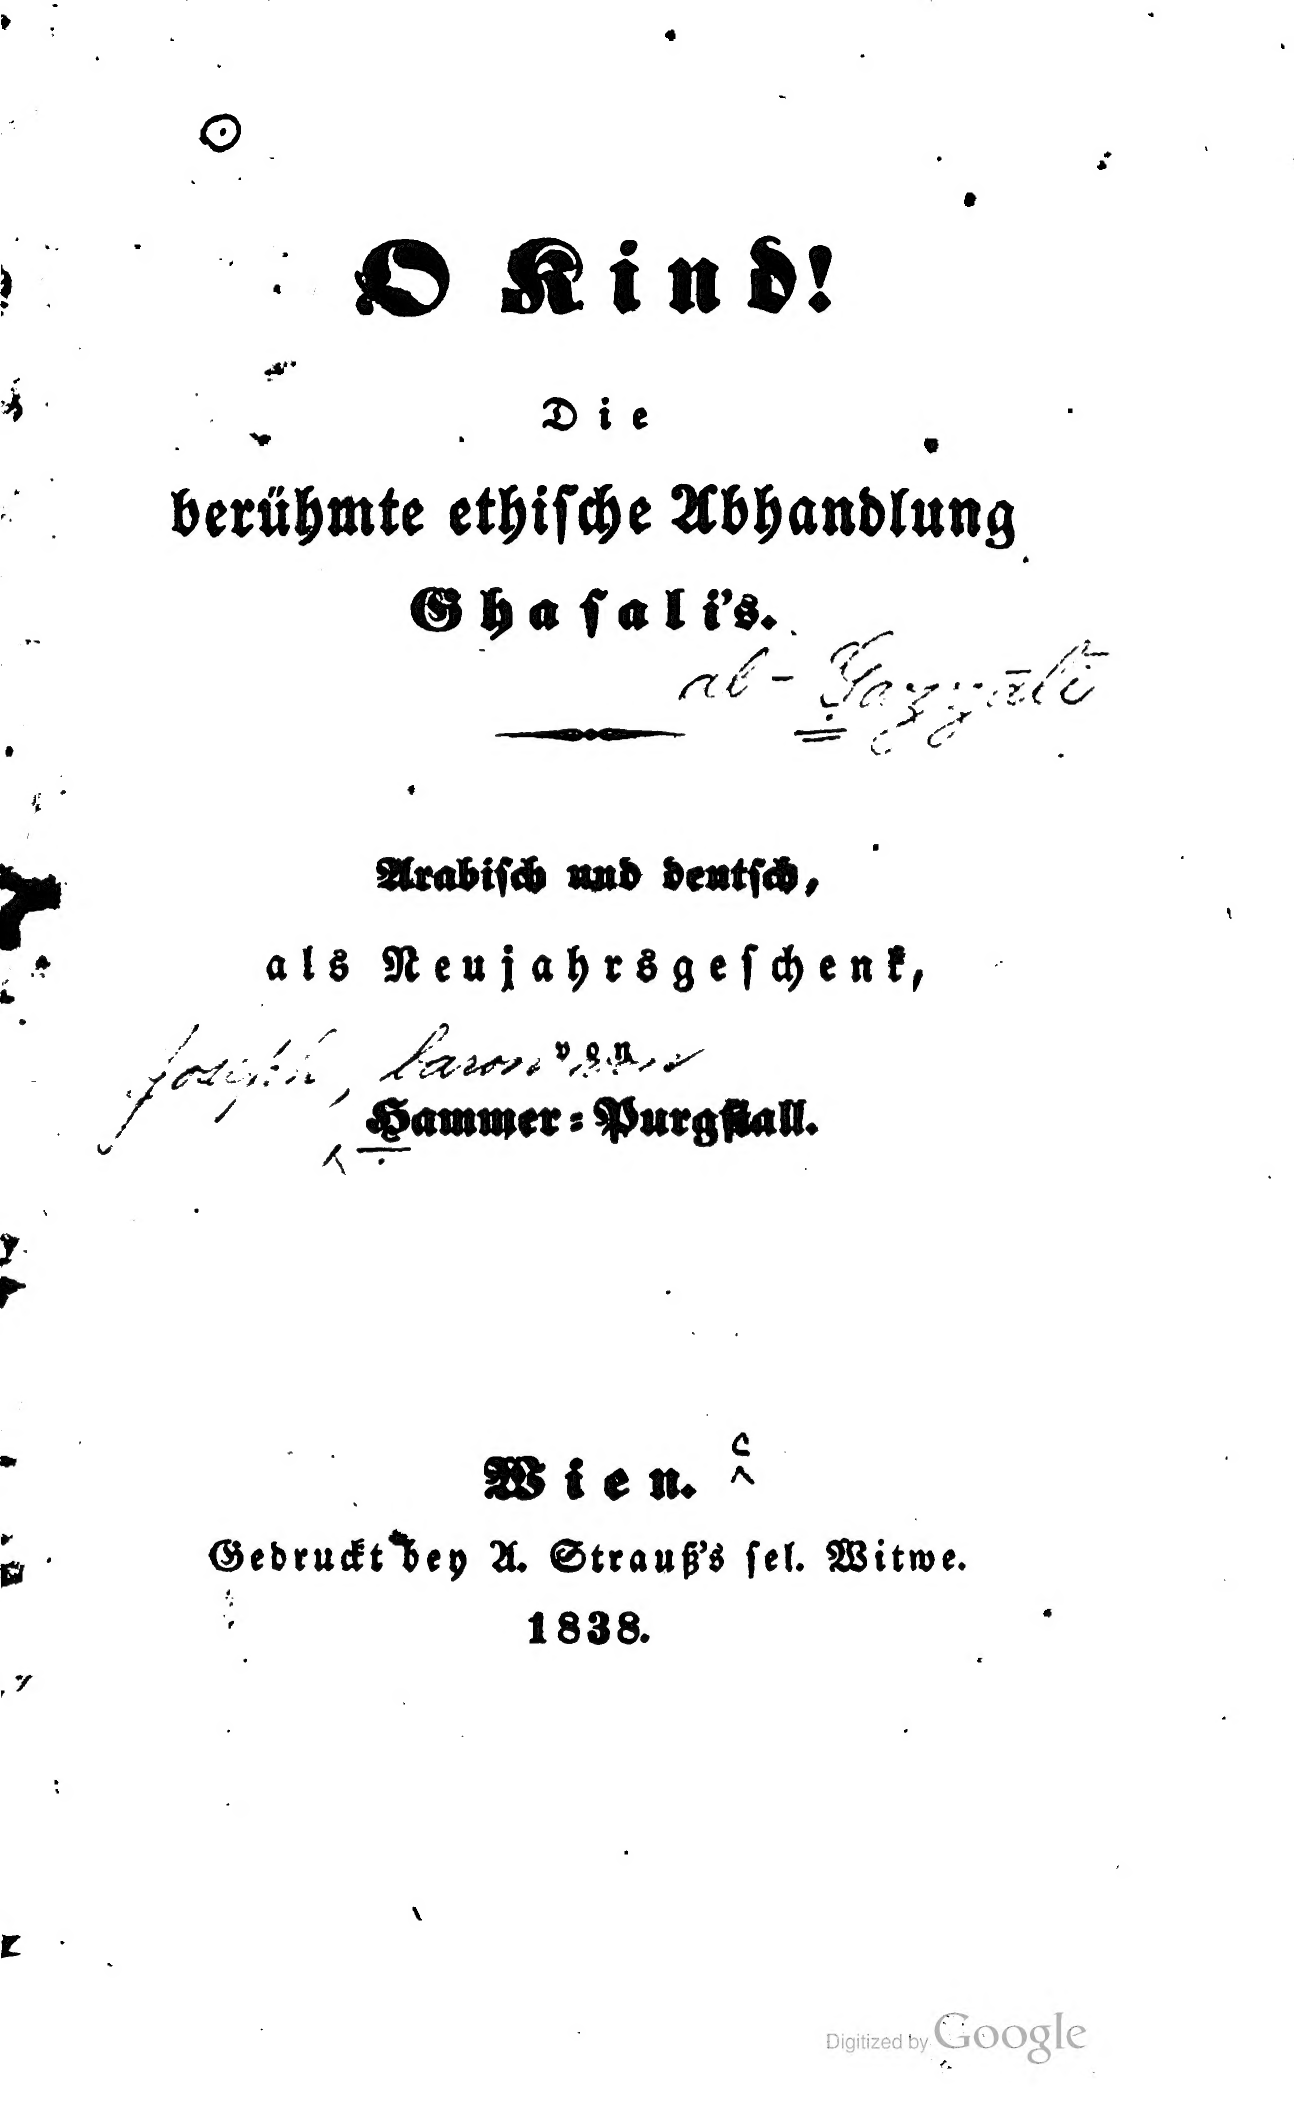 O Kind!
Die
berühmte ethische Abhandlung
Ghasali's.
al-Gazzālī
Arabisch und deutsch,
als Neujahrsgeschenk,
von
Joseph, baron von
Hammer-Purgstall.
Wien. c
Gedruckt bey A. Strauß's sel. Witwe.
1838.
Digitized by Google